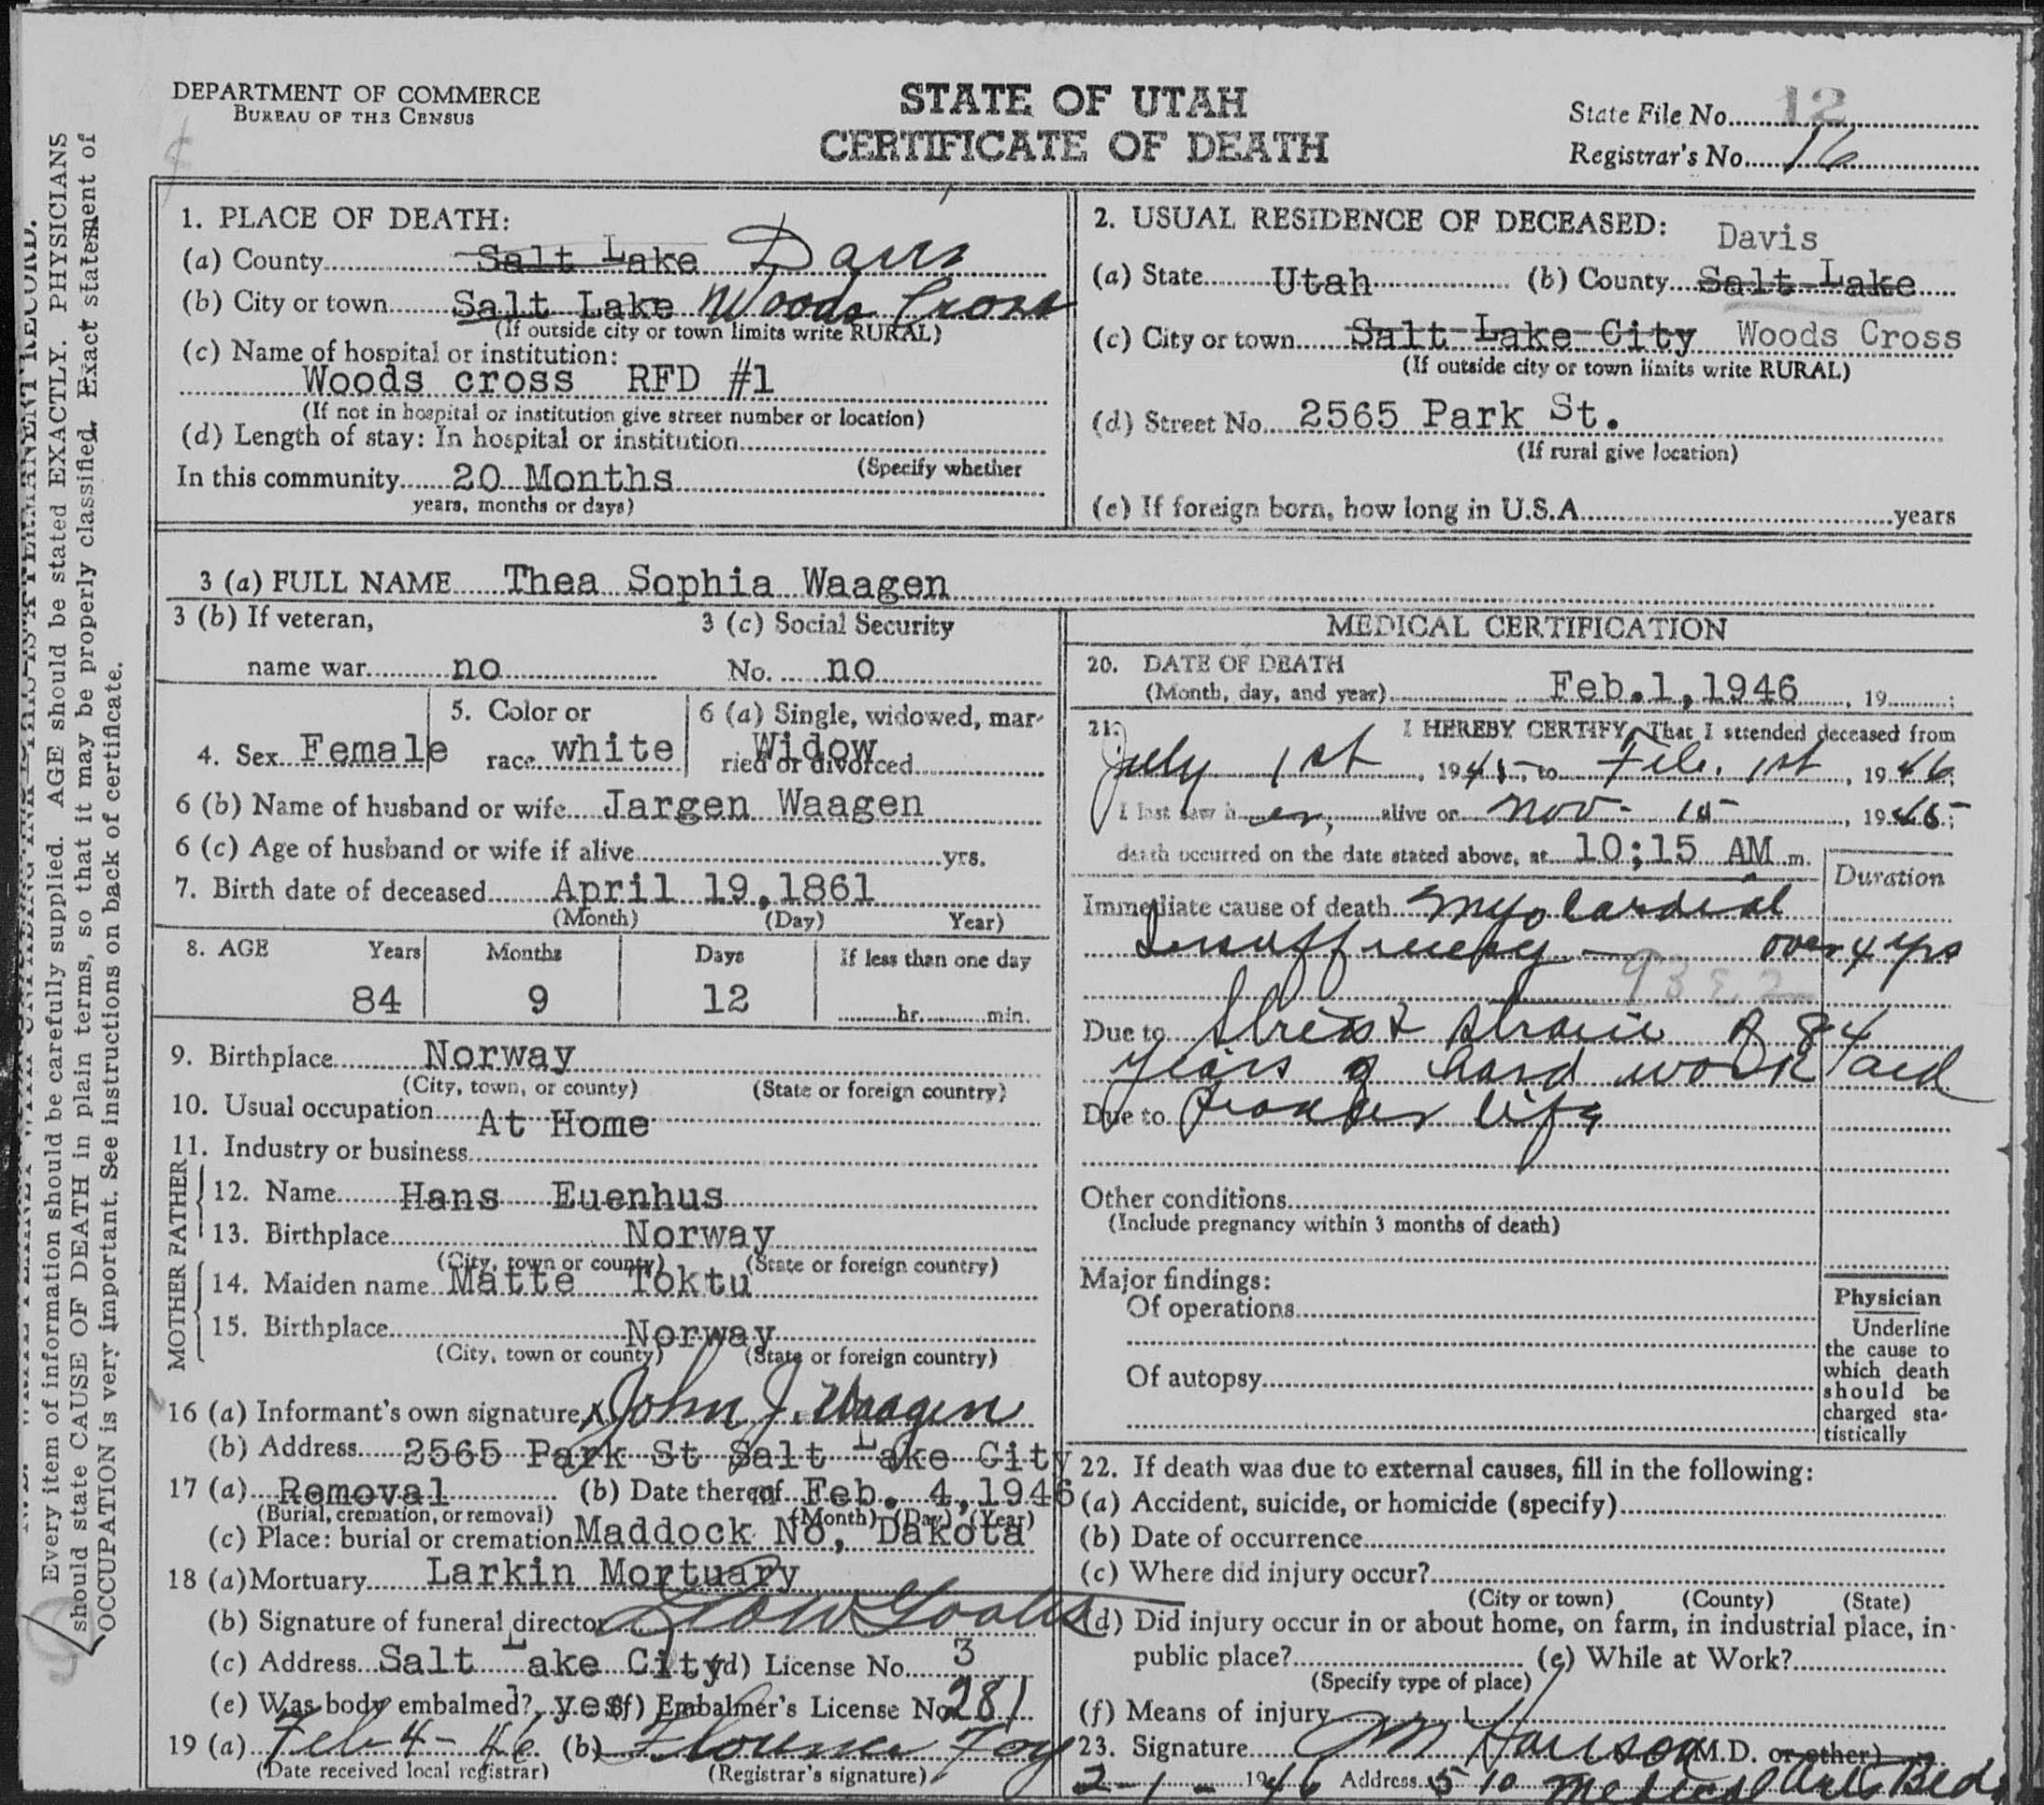 DEPARTMENT OF COMMERCE
BUREAU OF THE CENSUS
STATE OF UTAH
CERTIFICATE OF DEATH
State File No. 12
Registrar's No. 16
Every item of information should be carefully supplied. AGE should be stated EXACTLY. PHYSICIANS
should state CAUSE OF DEATH in plain terms, so that it may be properly classified. Exact statement of
OCCUPATION is very important. See instructions on back of certificate.
1. PLACE OF DEATH:
(a) County Salt Lake Davis
(b) City or town Salt Lake Woods Cross
(If outside city or town limits write RURAL)
(c) Name of hospital or institution:
Woods cross RFD #1
(If not in hospital or institution give street number or location)
(d) Length of stay: In hospital or institution
(Specify whether
In this community 20 Months
years, months or days)
2. USUAL RESIDENCE OF DECEASED:
Davis
(a) State Utah (b) County Salt Lake
(c) City or town Salt Lake City Woods Cross
(If outside city or town limits write RURAL)
(d) Street No. 2565 Park St.
(If rural give location)
(e) If foreign born, how long in U.S.A. years
3 (a) FULL NAME Thea Sophia Waagen
3 (b) If veteran,
name war no
3 (c) Social Security
No. no
4. Sex Female
5. Color or
race white
6 (a) Single, widowed, mar-
ried or divorced Widow
6 (b) Name of husband or wife Jargen Waagen
6 (c) Age of husband or wife if alive yrs.
7. Birth date of deceased April 19, 1861
(Month) (Day) Year)
8. AGE Years Months Days If less than one day
84 9 12 hr. min.
9. Birthplace Norway
(City, town, or county) (State or foreign country)
10. Usual occupation At Home
11. Industry or business
FATHER
12. Name Hans Euenhus
13. Birthplace Norway
(City, town or county) (State or foreign country)
MOTHER
14. Maiden name Matte Toktu
15. Birthplace Norway
(City, town or county) (State or foreign country)
16 (a) Informant's own signature X John J. Waagen
(b) Address 2565 Park St Salt Lake City
17 (a) Removal (b) Date thereof Feb. 4, 1946
(Burial, cremation, or removal) (Month) (Day) (Year)
(c) Place: burial or cremation Maddock No, Dakota
18 (a) Mortuary Larkin Mortuary
(b) Signature of funeral director
(c) Address Salt Lake City (d) License No. 3
(e) Was body embalmed? yes (f) Embalmer's License No. 281
19 (a) Feb 4 - 46 (b) Florence Foy
(Date received local registrar) (Registrar's signature)
MEDICAL CERTIFICATION
20. DATE OF DEATH
(Month, day, and year) Feb. 1, 1946, 19 ;
21. I HEREBY CERTIFY, That I attended deceased from
July 1st, 1945, to Feb. 1st, 1946;
I last saw h er, alive on Nov - 15, 1945;
death occurred on the date stated above, at 10:15 AM m.
Duration
Immediate cause of death Myocardial
Insufficiency - over 4 yrs
93 E 2
Due to Stress & strain of 84
years of hard work and
Due to Pioneer life
Other conditions
(Include pregnancy within 3 months of death)
Major findings:
Of operations
Of autopsy
Physician
Underline
the cause to
which death
should be
charged sta-
tistically
22. If death was due to external causes, fill in the following:
(a) Accident, suicide, or homicide (specify)
(b) Date of occurrence
(c) Where did injury occur?
(City or town) (County) (State)
(d) Did injury occur in or about home, on farm, in industrial place, in
public place? (e) While at Work?
(Specify type of place)
(f) Means of injury
23. Signature (M.D. or other)
2-1- 1946 Address 510 Medical Arts Bldg